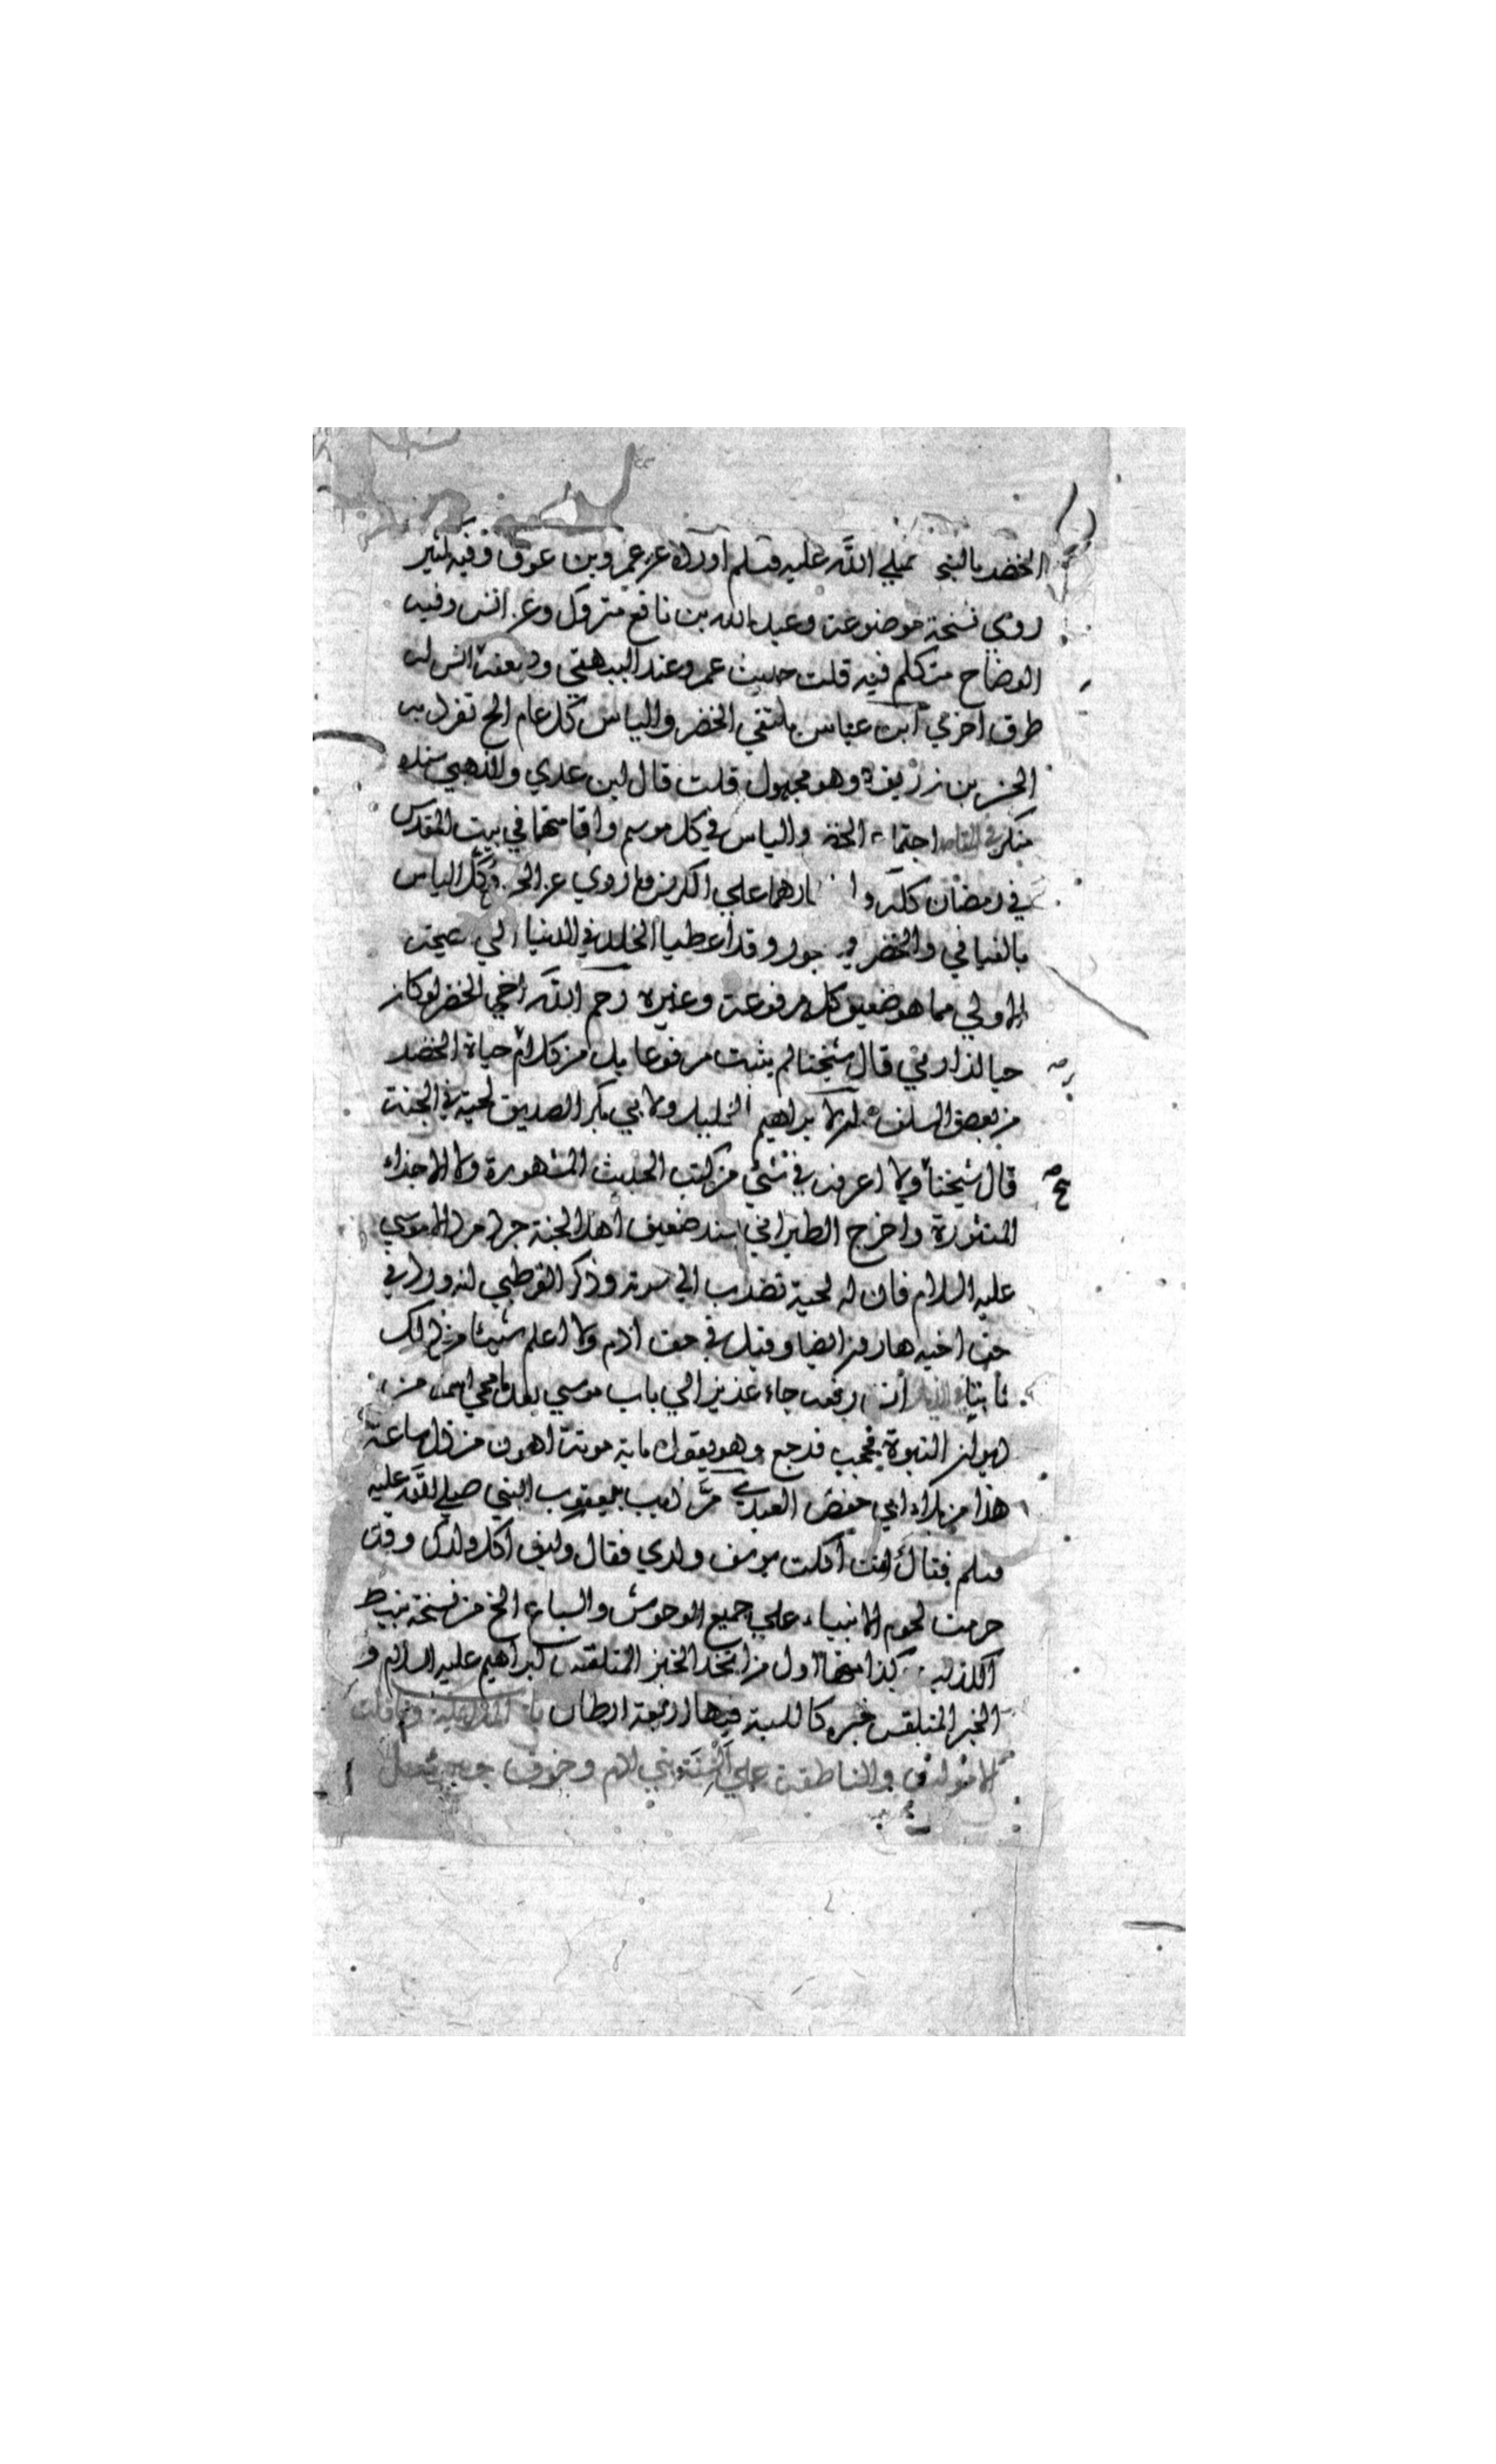 الخضر بالنبي صلي الله عليه وسلم اورده عن عمرو بن عوف وفيه كثير
روي نسخة موضوعة وعبد الله بن نافع متروك وعن انس وفيه
الوضاح متكلم فيه قلت حديث عمرو عند البيهقي وحديث انس له
طرق اخري ابن عباس يلتقي الخضر والياس كل عام الخ تفرد به
الحسن بن زريق وهو مجهول قلت قال ابن عدي والذهبي سنده
منكر في المقاصد اجتماع الخضر والياس في كل موسم واقامتهما في بيت المقدس
في رمضان كله وا علي الكرفس وما روي عن وكل الياس
بالفيافي والخضر بالبحور وقد اعطيا الخلد في الدنيا الي الصيحة
الاولي مما هو ضعيف كله مرفوعه وغيره رحم الله اخي الخضر لو كان
حيا لزارني قال شيخنا لم يثبت مرفوعا بل من كلام حياة الخضر
من بعض السلف لابراهيم الخليل ولابي بكر الصديق لحية في الجنة
قال شيخنا ولا اعرف في شئي من كتب الحديث المشهورة ولا الاجزاء
المنثورة واخرج الطبراني بسند ضعيف اهل الجنة جرد مرد الا موسي
عليه السلام فان له لحية تضرب الي سرته وذكر القرطبي انه ورد في
حق اخيه هارون ايضا وقيل في حق ادم ولا اعلم شيئا من ذلك
ثابتا انس رفعه جاء عزير الي باب موسي بعد ما محي اسمه من
ديوان النبوة فحجب فرجع وهو يقول ماية موتة اهون من ذل ساعة
هذا من بلاء ابي حفص العبدي مر ذيب بيعقوب النبي صلي الله عليه
وسلم فقال انت اكلت يوسف ولدي فقال وكيف اكل ولدك وقد
حرمت لحوم الانبياء علي جميع الوحوش والسباع الخ من نسخة نبيط
الكذاب كذا منها اول من اتخذ الخبز المبلقس ابراهيم عليه السلام و
الخبز المبلقس خبزه كاللبنة فيها اربعة ارطال
والناطقة علي السنة بني ادم وخوف